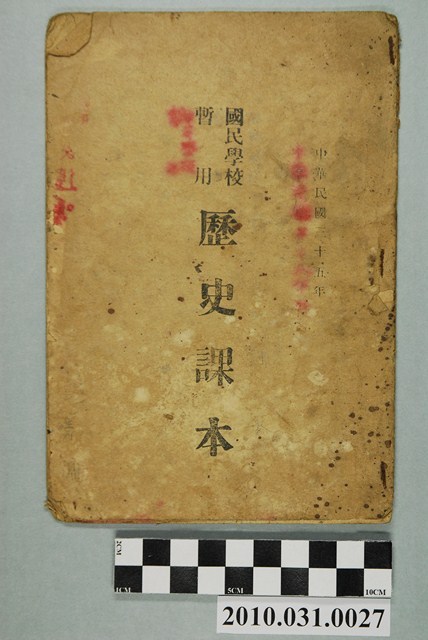 中華民國 十五年
國民學校
暫用
歷史課本
2CM
1CM
5CM
10CM
2010.031.0027